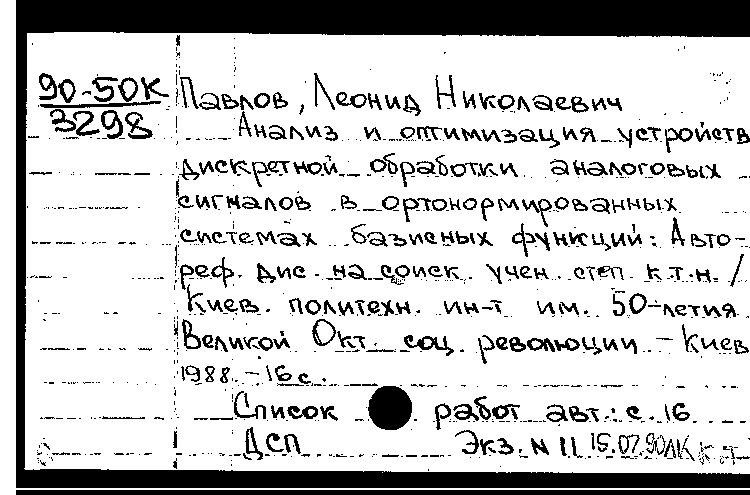 90-50К
3298
Павлов, Леонид Николаевич
Анализ и оптимизация устройств
дискретной обработки аналоговых
сигналов в ортонормированных
системах базисных функций: Авто-
реф. дис. на соиск. учен. степ. к.т.н. /
Киев. политехн. ин-т им. 50-летия
Великой Окт. соц. революции - Киев
1988. - 16 с.
Список работ авт.: с. 16
ДСП Экз. N 11 15.07.90